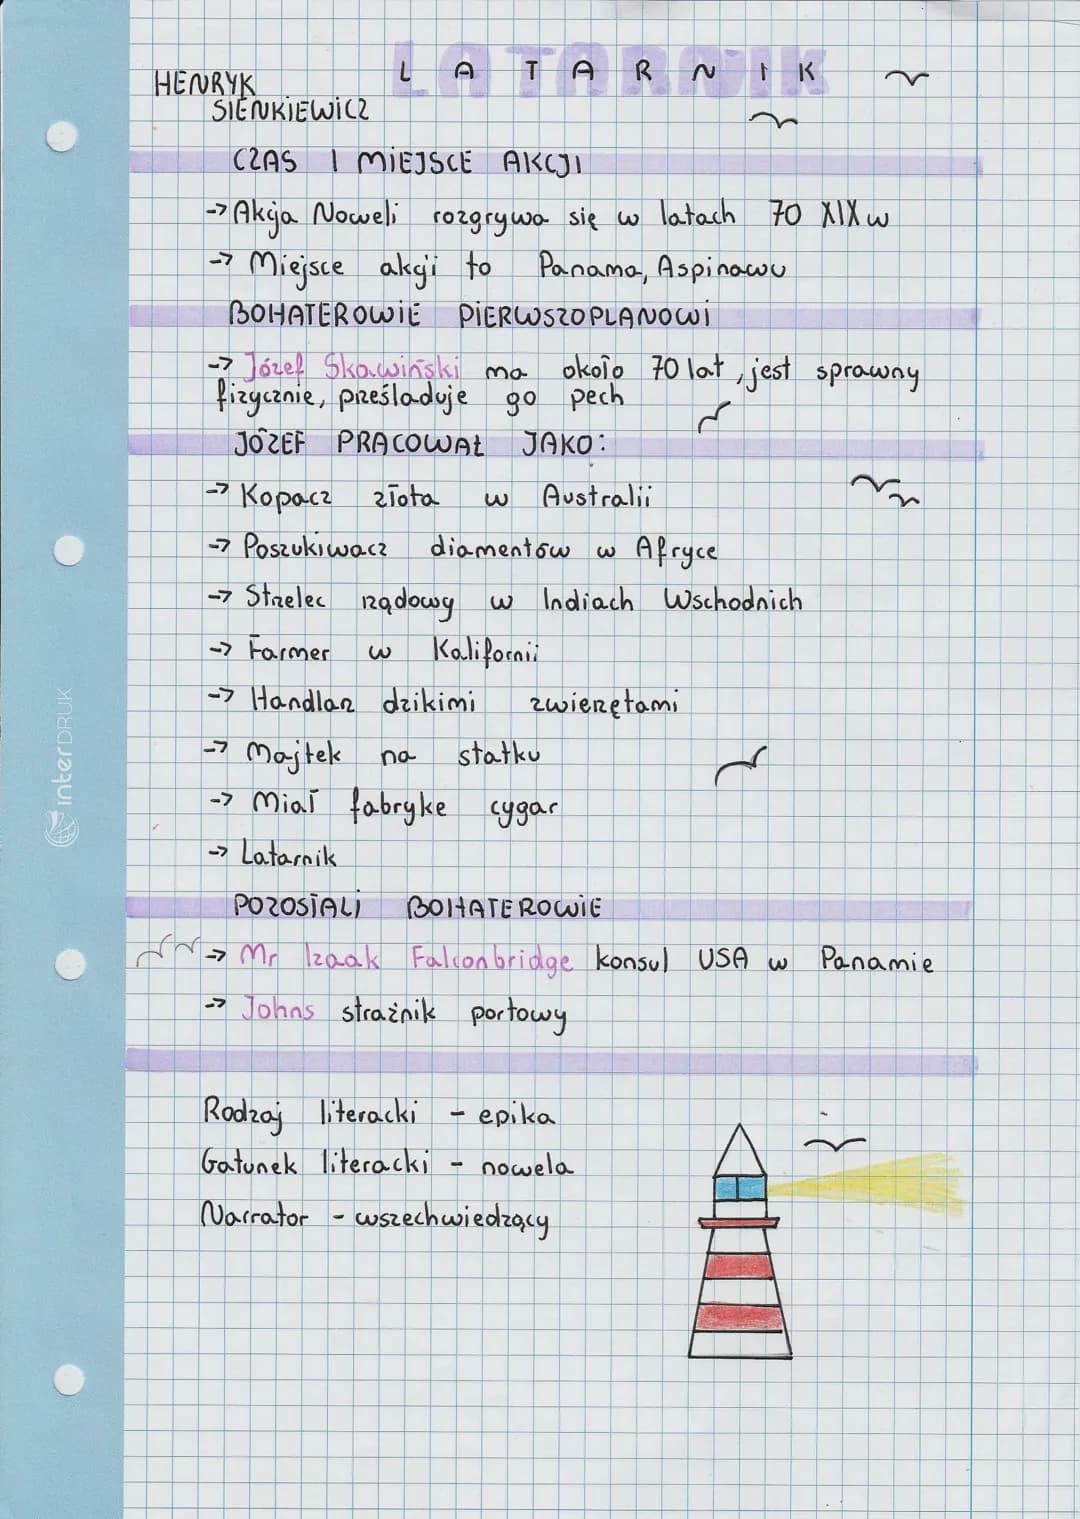 LATARNIK
HENRYK
SIENKIEWICZ
CZAS I MIEJSCE AKCJI
-> Akcja Noweli rozgrywa się w latach 70 XIX w
-> Miejsce akcji to Panama, Aspinawu
BOHATEROWIE PIERWSZOPLANOWI
-> Józef Skawiński ma około 70 lat, jest sprawny
fizycznie, prześladuje go pech
JÓZEF PRACOWAŁ JAKO:
-> Kopacz złota w Australii
-> Poszukiwacz diamentów w Afryce
-> Strzelec rządowy w Indiach Wschodnich
-> Farmer w Kalifornii
-> Handlarz dzikimi zwierzętami
-> Majtek na statku
-> Miał fabryke cygar
-> Latarnik
POZOSTALI BOHATEROWIE
-> Mr Izaak Falconbridge konsul USA w Panamie
-> Johns strażnik portowy
Rodzaj literacki - epika
Gatunek literacki - nowela
Narrator - wszechwiedzący
interDRUK